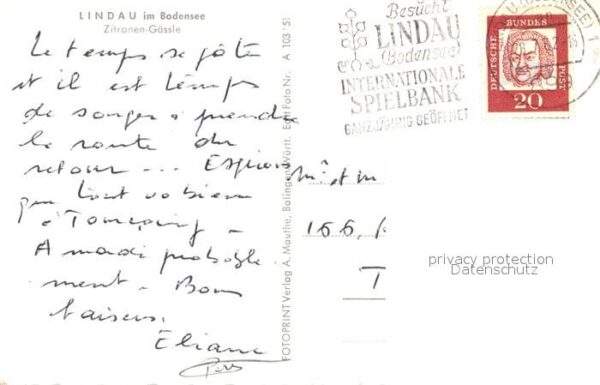 LINDAU im Bodensee
Zitronen-Gässle
Le temps se gâte
et il est temps
de songer à prendre
la route du
retour... Espérons
que tout va bien
à Tourcoing -
A mardi probable
ment - Bons
baisers.
Eliane
FOTOPRINT Verlag A. Mauthe, Balingen Württ. Echt Foto Nr. A 103/51
Besucht
LINDAU
(Bodensee)
INTERNATIONALE
SPIELBANK
GANZJÄHRIG GEÖFFNET
DEUTSCHE BUNDES POST
20
M. et M
166, 
T
privacy protection
Datenschutz